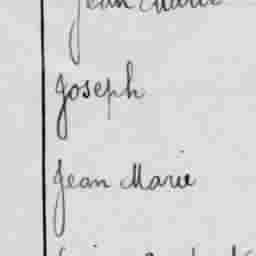 Jean Marie
Joseph
Jean Marie